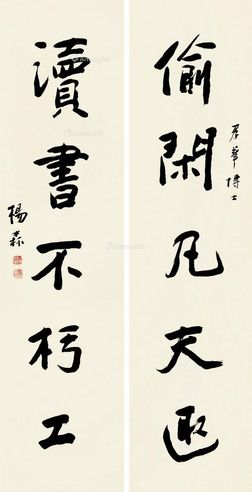 華博士
偷閑凡夫趣
讀書不朽工
楊森